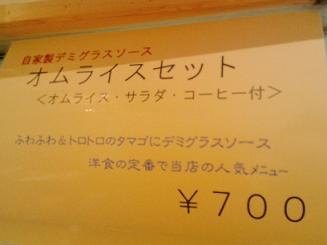 自家製デミグラスソース
オムライスセット
＜オムライス・サラダ・コーヒー付＞
ふわふわ＆トロトロのタマゴにデミグラスソース
洋食の定番で当店の人気メニュー
￥７００